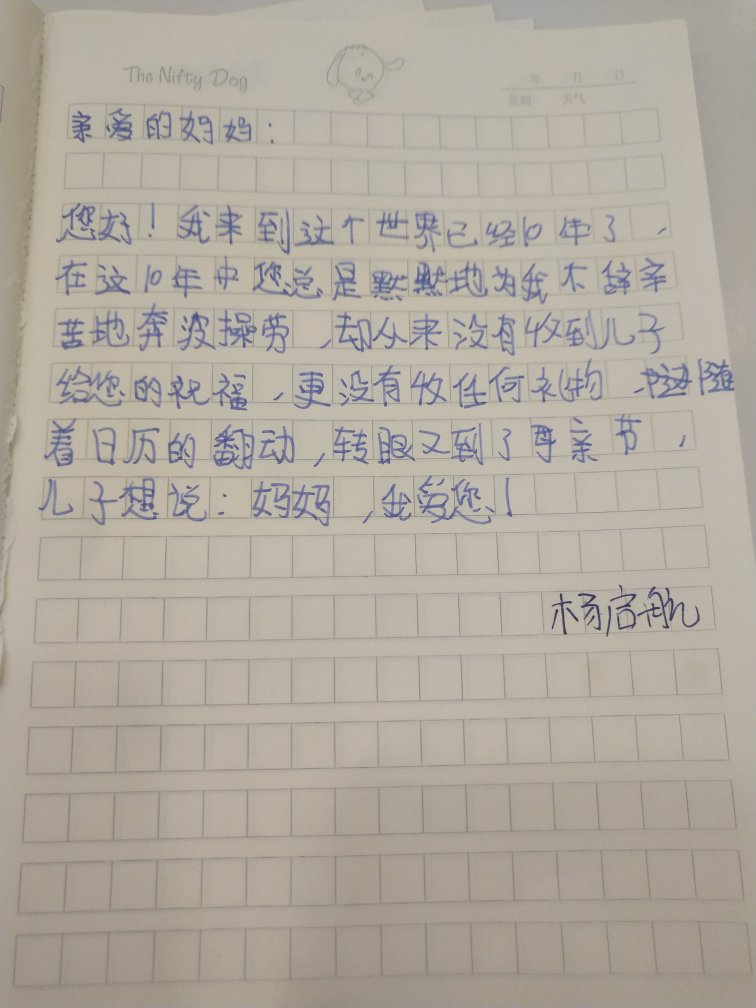 The Nifty Dog
年 月 日
星期 天气
亲爱的妈妈:
您好!我来到这个世界已经10年了,
在这10年中您总是默默地为我不辞辛
苦地奔波操劳,却从来没有收到儿子
给您的祝福,更没有收任何礼物,随
着日历的翻动,转眼又到了母亲节,
儿子想说:妈妈,我爱您!
杨启航